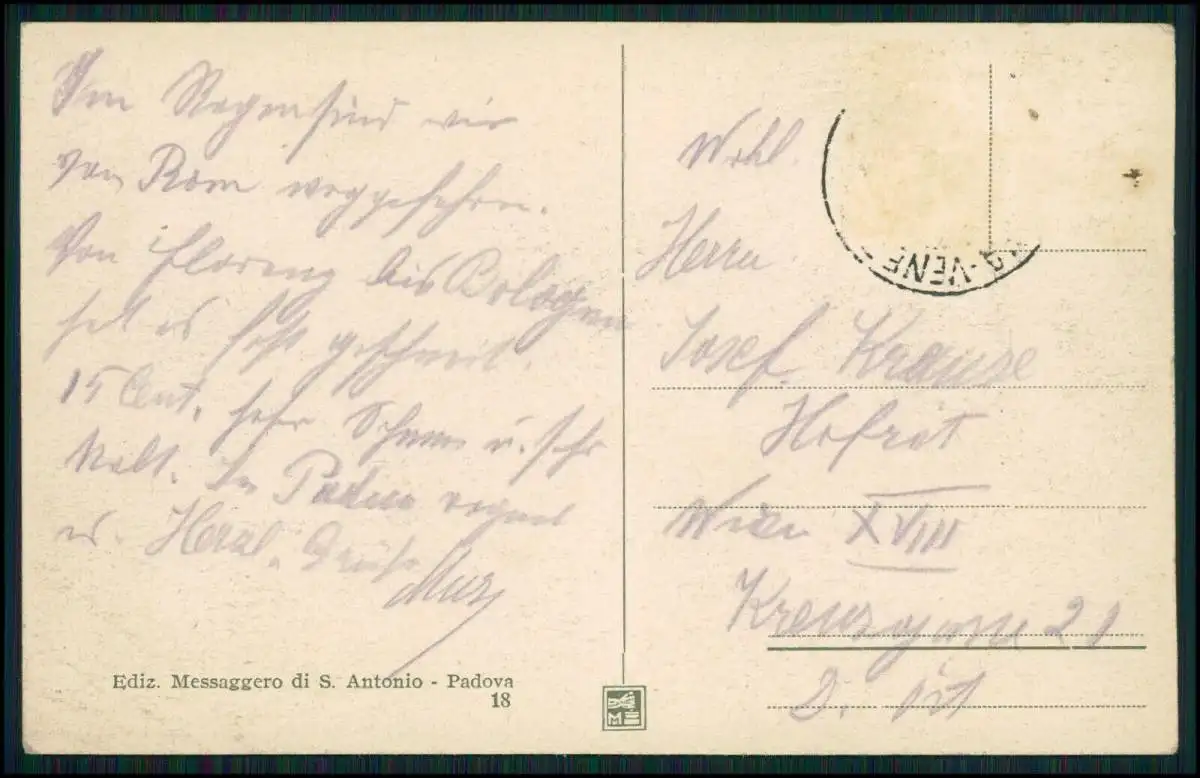 Im Regen sind wir
von Rom weggefahren.
Von Florenz bis Bologna
hat es fest geschneit.
15 Cent. hoher Schnee u. sehr
kalt. In Padua regnet
es. Herzl. Grüße
Wohl.
Herrn
Josef Krause
Hofrat
Wien XVIII
Kreuzgasse 21
Ö. ist
VENE
Ediz. Messaggero di S. Antonio - Padova
18
M